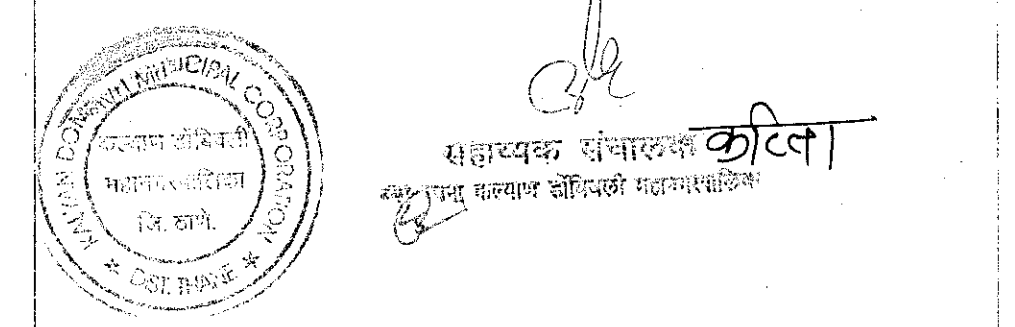 KALYAN DOMBIVLI MUNICIPAL CORPORATION
कल्याण डोंबिवली
महानगरपालिका
जि. ठाणे.
* DIST. THANE *
सहाय्यक संचालक
कल्याण डोंबिवली महानगरपालिका